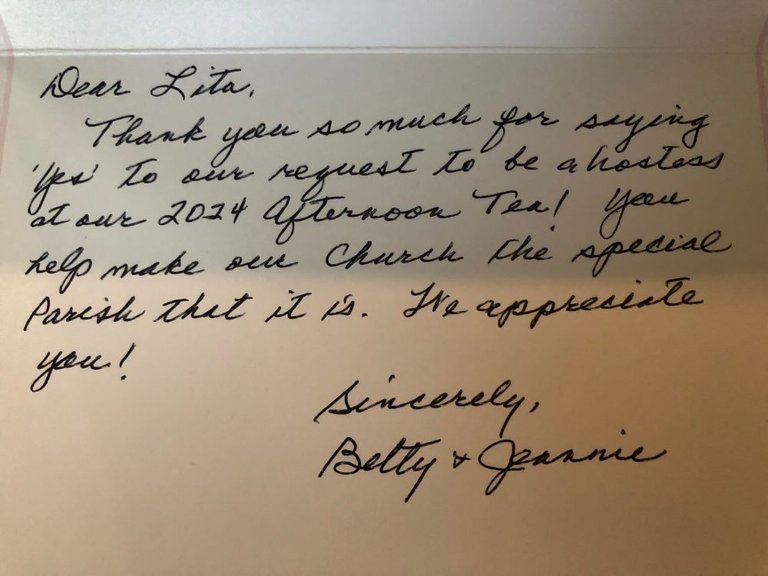 Dear Lita,
Thank you so much for saying
'Yes' to our request to be a hostess
at our 2024 Afternoon Tea! You
help make our Church the special
Parish that it is. We appreciate
you!
Sincerely,
Betty & Jeannie